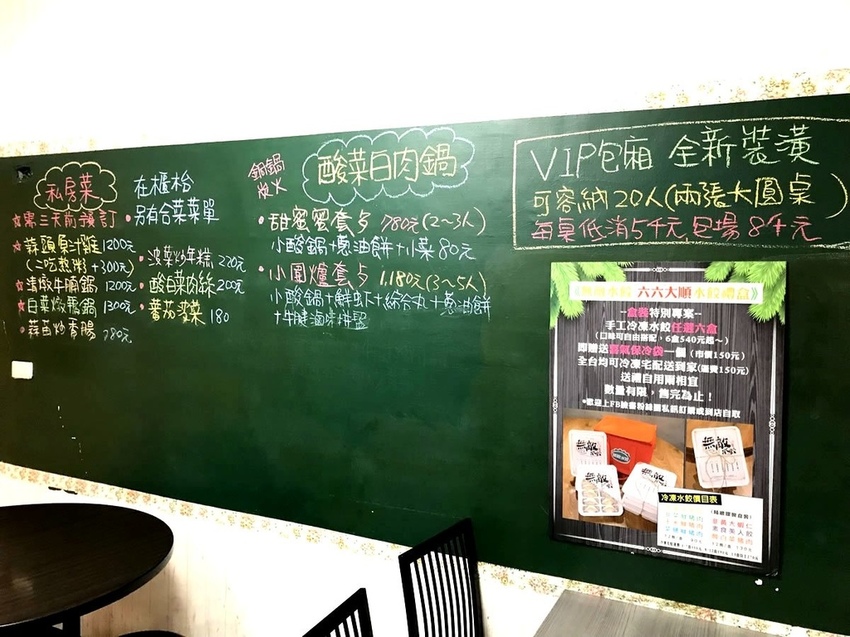 私房菜
在櫃枱
另有合菜菜單
★需三天前預訂
★蒜頭原汁雞 1200元
(二吃熬粥+300元)
★清燉牛腩鍋 1200元
★白菜燉鴨鍋 1300元
★蒜苗炒香腸 780元
•菠菜炒年糕 220元
•酸白菜肉絲 200元
•番茄菠菜 180
銅鍋
炭火
酸菜白肉鍋
•甜蜜蜜套餐 780元(2~3人)
小酸鍋+蔥油餅+小菜80元
•小圍爐套餐 1,180元(3~5人)
小酸鍋+鮮蝦+綜合丸+蔥油餅
+牛腱滷味拼盤
VIP包廂 全新裝潢
可容納20人(兩張大圓桌)
每桌低消5千元,包場8千元
六六大順水餃禮盒》
--盒裝特別專案--
手工冷凍水餃任選六盒
(口味可自由搭配,6盒540元起~)
即贈送喜氣保冷袋一個(市價150元)
全台均可冷凍宅配送到家(運費150元)
送禮自用兩相宜
數量有限,售完為止!
*歡迎上FB臉書粉絲團私訊訂購或到店自取
無敵
無敵
無敵
冷凍水餃價目表